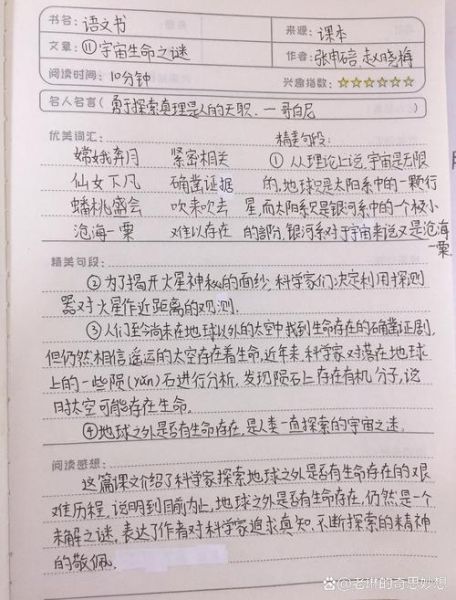 书名：语文书
来源：课本
文章：⑪宇宙生命之谜
作者：张申碚 赵晓梅
阅读时间：10分钟
兴趣指数：☆☆☆☆☆☆
名人名言（勇于探索真理是人的天职．—哥白尼）
优美词汇：
精美句段：
嫦娥奔月 紧密相关 ①从理论上说，宇宙是无限
仙女下凡 确凿证据 的，地球只是太阳系中的一颗行
蟠桃盛会 吹来吹去 星，而太阳系只是银河系中的一个极小
沧海一栗 难以存在 的部分，银河系对于宇宙来说又是沧海
一栗．
精美句段：
②为了揭开火星神秘的面纱，科学家们决定利用探测
器对火星作近距离的观测．
③人们至今尚未在地球以外的太空中找到生命存在的确凿证剧，
但仍然相信遥远的太空存在着生命，近年来，科学家对落在地球
上的一些陨(yǔn)石进行分析，发现陨石上存在有机分子，说
明太空可能存在生命．
④地球之外是否有生命存在，是人类一直探索的宇宙之迷．
阅读感想：
这篇课文介绍了科学家探索地球之外是否有生命存在的艰
难历程，说明到目前为止，地球之外是否有生命存在，仍然是一个
未解之谜，表达了作者对科学家追求真知、不断探索的精神
的敬佩．
@老琳的奇思妙想